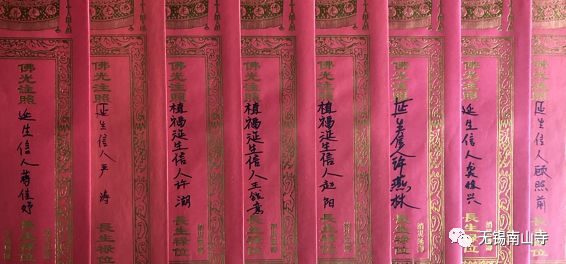 佛光注照
延生信人蒋佳妤
長生祿位
佛光注照
延生信人严涛
長生祿位
佛光注照
植福延生信人许湖
長生祿位
佛光注照
植福延生信人王
長生祿位
佛光注照
植福延生信人赵阳
長生祿位
佛光注照
延生信人许燕林
長生祿位
佛光注照
延生信人俊兴
長生祿位
佛光注照
延生信人顾照前
長生祿位
消災延壽
无锡南山寺